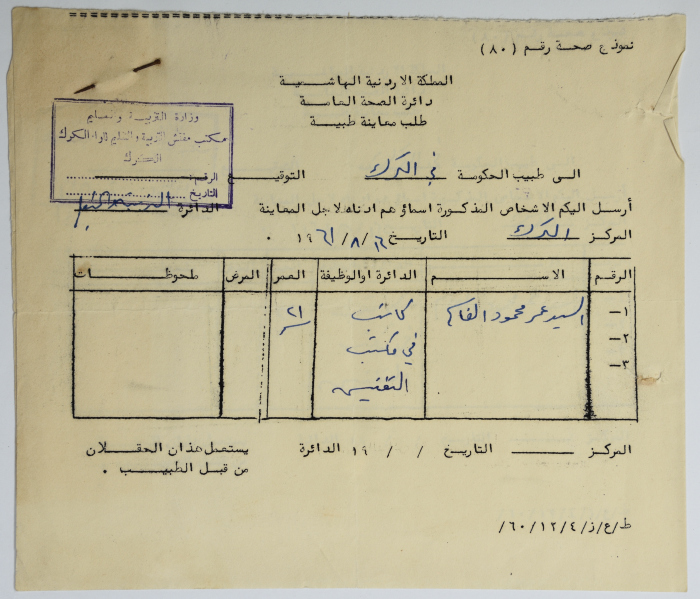 نموذج صحة رقم (٨٠)
المملكة الاردنية الهاشمية
دائرة الصحة العامة
طلب معاينة طبية
وزارة التربية والتعليم
مكتب مفتش التربية والتعليم للواء الكرك
الكرك
الرقم:
التاريخ
الى طبيب الحكومة في الكرك التوقيع
أرسل اليكم الاشخاص المذكورة اسماؤهم ادناه لاجل المعاينة الدائرة
المركز الكرك التاريخ ١٦/٨/١٩٦١ .
الرقم الاسم الدائرة او الوظيفة العمر المرض ملحوظات
١- السيد عمر محمود كاتب ٢١
٢- في مكتب
٣- التفتيش
المركز التاريخ / / ١٩ الدائرة يستعمل هذان الحقلان
من قبل الطبيب .
ط/ع/ز/٤/١٢/٦٠/